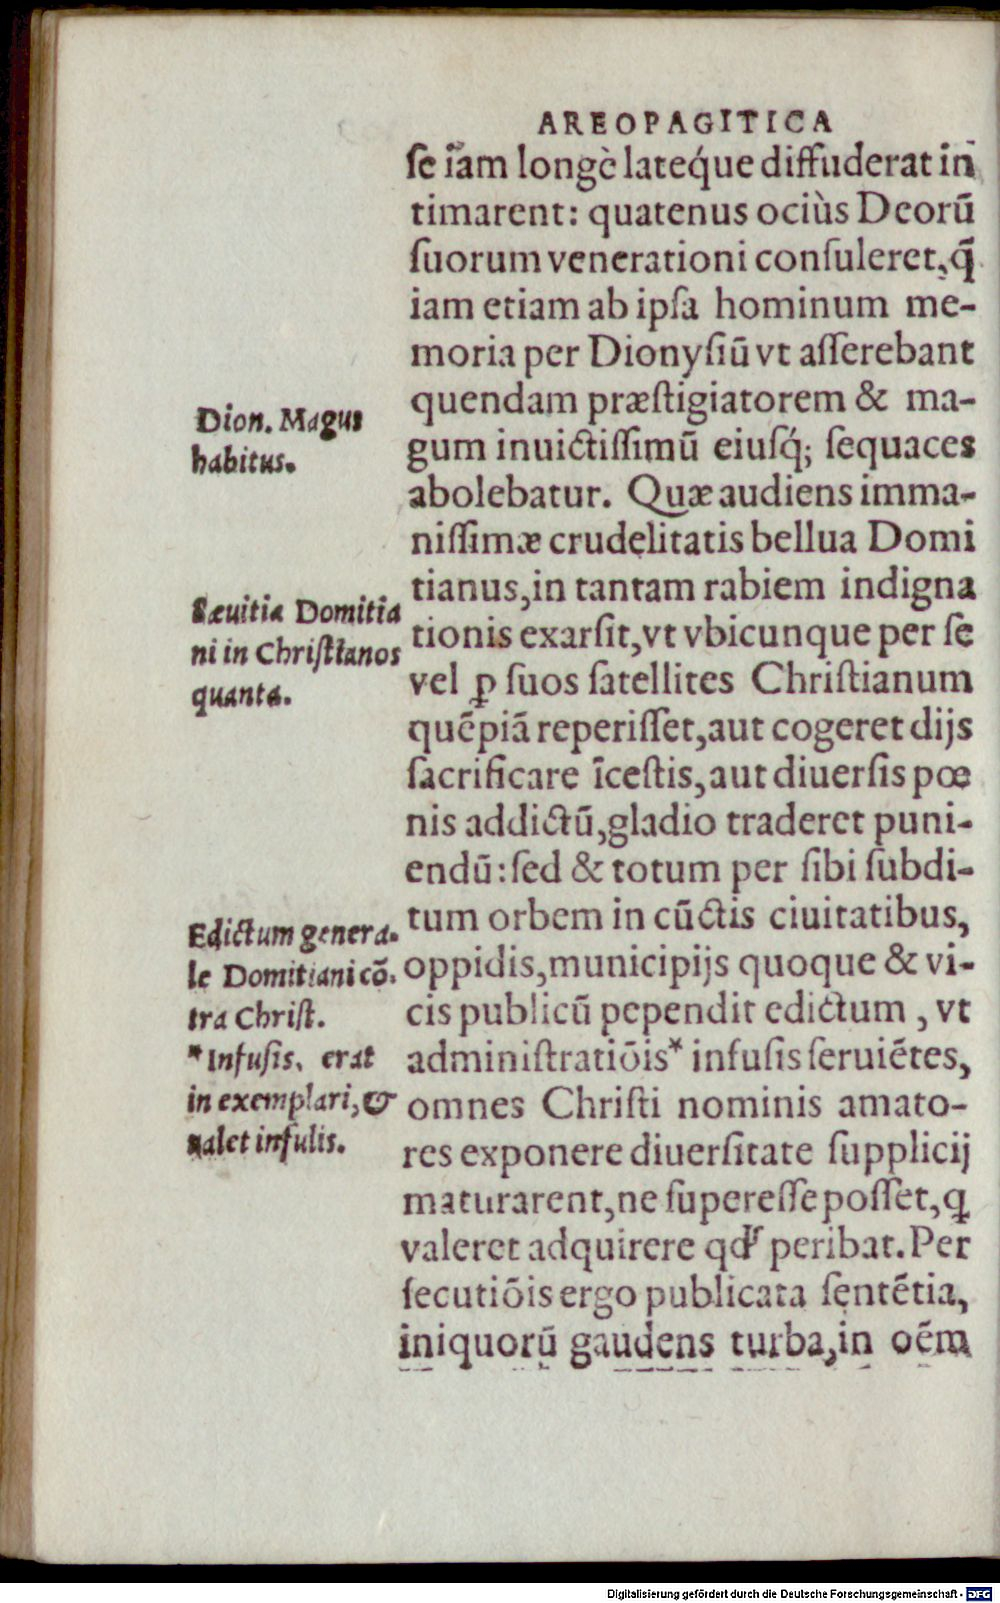 AREOPAGITICA
ſe iam longè latéque diffuderat in
timarent: quatenus ociùs Deorũ
ſuorum venerationi conſuleret, q̃
iam etiam ab ipſa hominum me-
moria per Dionyſiũ vt aſſerebant
quendam præſtigiatorem & ma-
gum inuictiſſimũ eiuſq́; ſequaces
abolebatur. Quæ audiens imma-
niſſimæ crudelitatis bellua Domi
tianus, in tantam rabiem indigna
tionis exarſit, vt vbicunque per ſe
vel ꝑ ſuos ſatellites Chriſtianum
quẽpiã reperiſſet, aut cogeret dijs
ſacrificare ĩceſtis, aut diuerſis pœ
nis addictũ, gladio traderet puni-
endũ: ſed & totum per ſibi ſubdi-
tum orbem in cũctis ciuitatibus,
oppidis, municipijs quoque & vi-
cis publicũ pependit edictum, vt
adminiſtratiõis* infuſis ſeruiẽtes,
omnes Chriſti nominis amato-
res exponere diuerſitate ſupplicij
maturarent, ne ſupereſſe poſſet, ꝗ
valeret adquirere qđ peribat. Per
ſecutiõis ergo publicata ſentẽtia,
iniquorũ gaudens turba, in oẽm
Dion. Magus
habitus.
Sæuitia Domitia
ni in Chriſtianos
quanta.
Edictum genera-
le Domitiani cõ-
tra Chriſt.
*Infuſis. erat
in exemplari, &
ualet infulis.
Digitalisierung gefördert durch die Deutsche Forschungsgemeinschaft - DFG